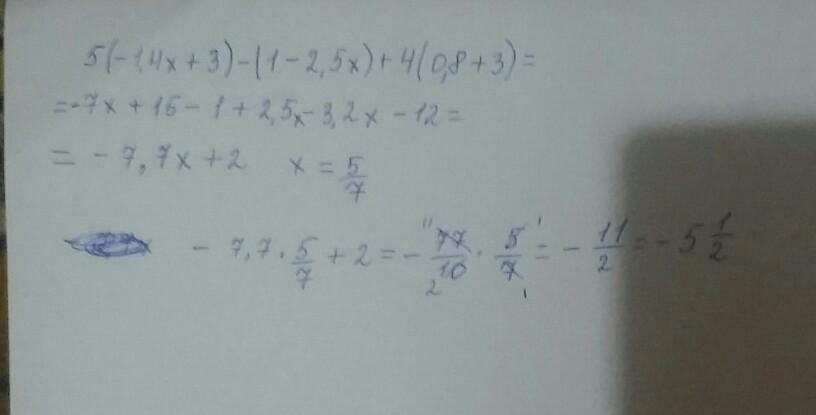 5(-1,4x+3)-(1-2,5x)+4(0,8+3)=
=-7x+15-1+2,5x-3,2x-12=
= -7,7x+2 x=5/7
-7,7·5/7+2=-77/10·5/7=-11/2=-5 1/2